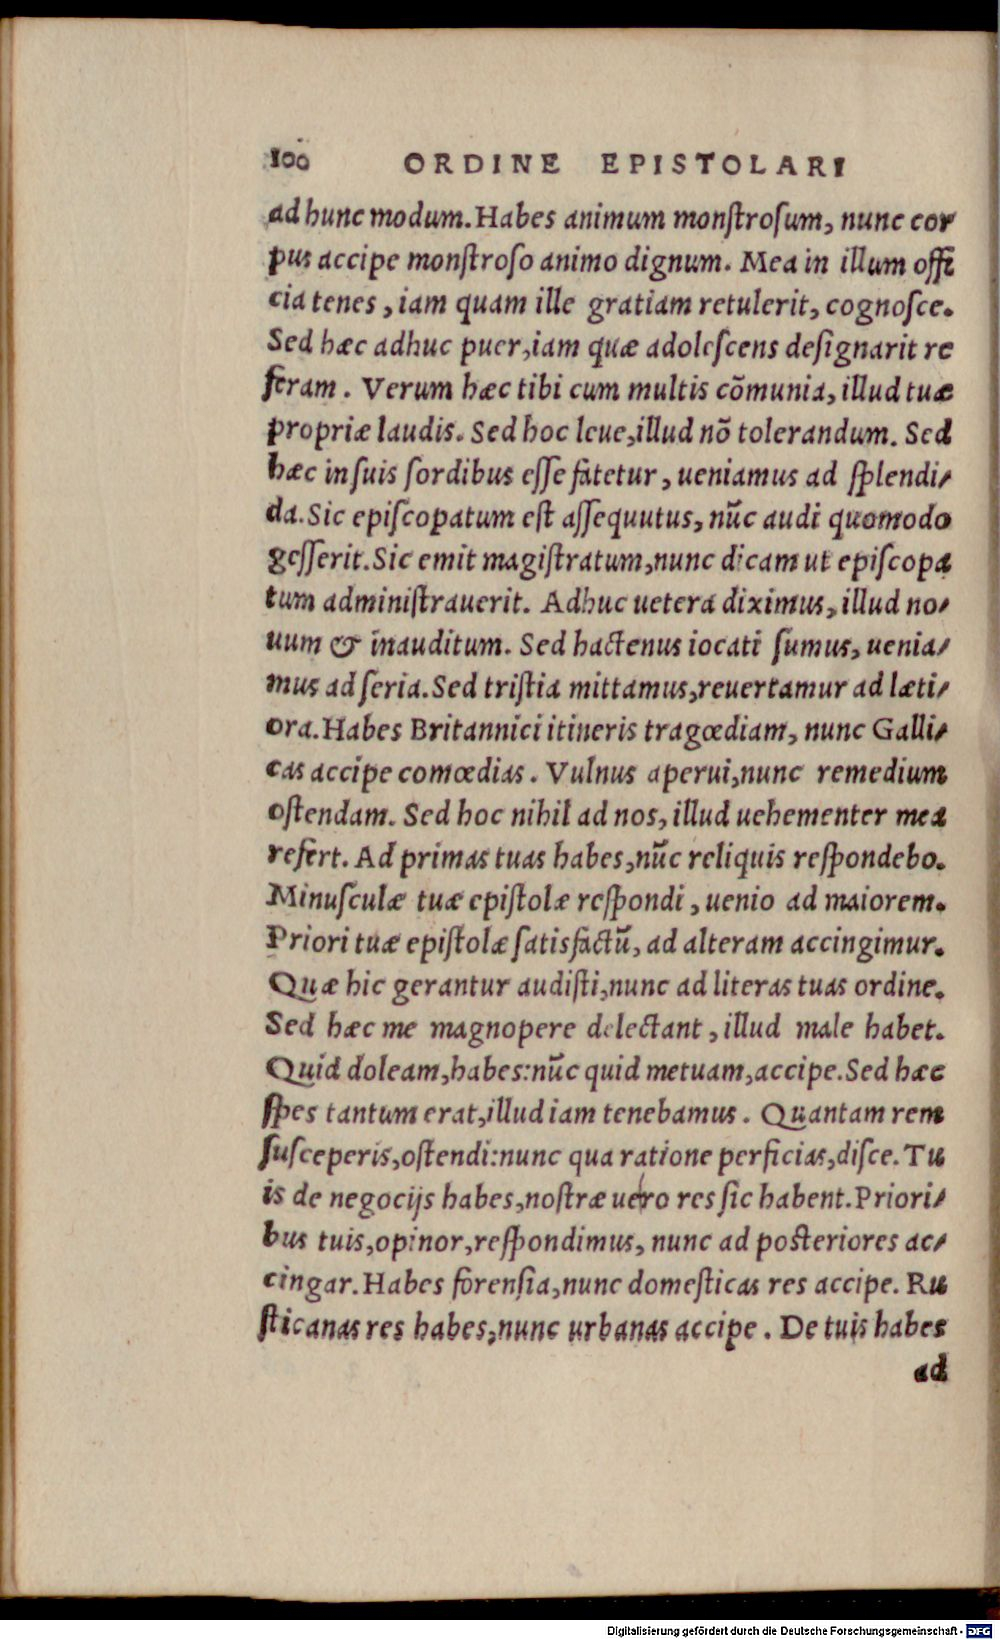 100 ORDINE EPISTOLARI
ad hunc modum. Habes animum monſtroſum, nunc cor
pus accipe monſtroſo animo dignum. Mea in illum offi
cia tenes, iam quam ille gratiam retulerit, cognoſce.
Sed hæc adhuc puer, iam quæ adoleſcens deſignarit re
feram. Verum hæc tibi cum multis cõmunia, illud tuæ
propriæ laudis. Sed hoc leue, illud nõ tolerandum. Sed
hæc in ſuis ſordibus eſſe fatetur, ueniamus ad ſplendi-
da. Sic epiſcopatum eſt aſſequutus, nũc audi quomodo
geſſerit. Sic emit magiſtratum, nunc dicam ut epiſcopa
tum adminiſtrauerit. Adhuc uetera diximus, illud no-
uum & inauditum. Sed hactenus iocati ſumus, uenia-
mus ad ſeria. Sed triſtia mittamus, reuertamur ad læti-
ora. Habes Britannici itineris tragœdiam, nunc Galli-
cas accipe comœdias. Vulnus aperui, nunc remedium
oſtendam. Sed hoc nihil ad nos, illud uehementer mea
refert. Ad primas tuas habes, nũc reliquis reſpondebo.
Minuſculæ tuæ epiſtolæ reſpondi, uenio ad maiorem.
Priori tuæ epiſtolæ ſatisfactũ, ad alteram accingimur.
Quæ hic gerantur audiſti, nunc ad literas tuas ordine.
Sed hæc me magnopere delectant, illud male habet.
Quid doleam, habes: nũc quid metuam, accipe. Sed hæc
ſpes tantum erat, illud iam tenebamus. Quantam rem
ſuſceperis, oſtendi: nunc qua ratione perficias, diſce. Tu
is de negocijs habes, noſtræ uero res ſic habent. Priori-
bus tuis, opinor, reſpondimus, nunc ad poſteriores ac-
cingar. Habes forenſia, nunc domeſticas res accipe. Ru
ſticanas res habes, nunc urbanas accipe. De tuis habes
ad
Digitalisierung gefördert durch die Deutsche Forschungsgemeinschaft - DFG